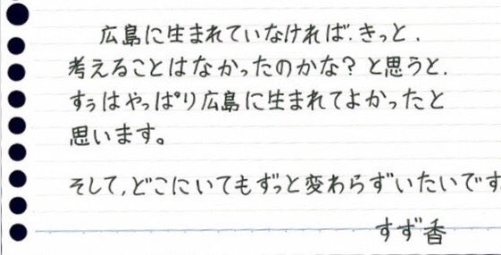 広島に生まれていなければ、きっと、
考えることはなかったのかな？と思うと、
すぅはやっぱり広島に生まれてよかったと
思います。
そして、どこにいてもずっと変わらずいたいです
すず香